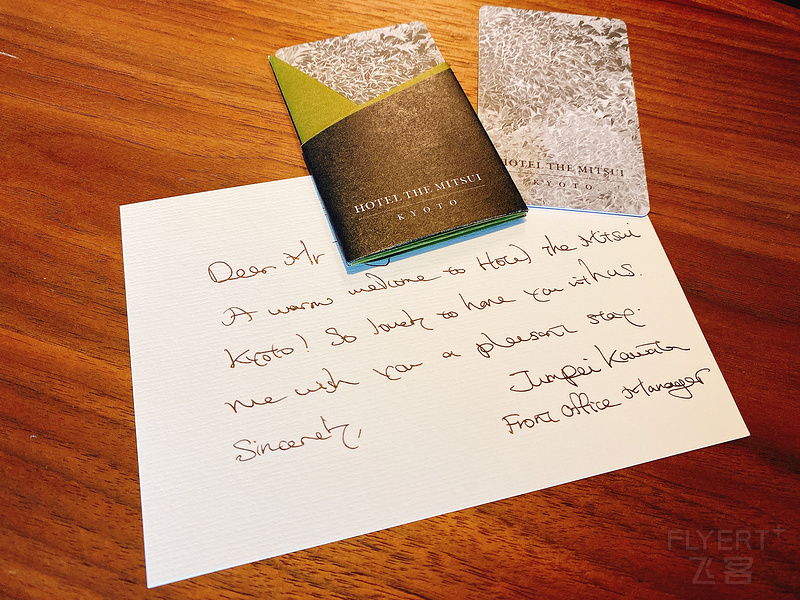 HOTEL THE MITSUI
KYOTO
HOTEL THE MITSUI
KYOTO
Dear Mr
A warm welcome to Hotel the Mitsui
Kyoto! So lovely to have you with us.
We wish you a pleasant stay.
Sincerely,
Junpei Kawata
Front Office Manager
FLYERT+
飞客